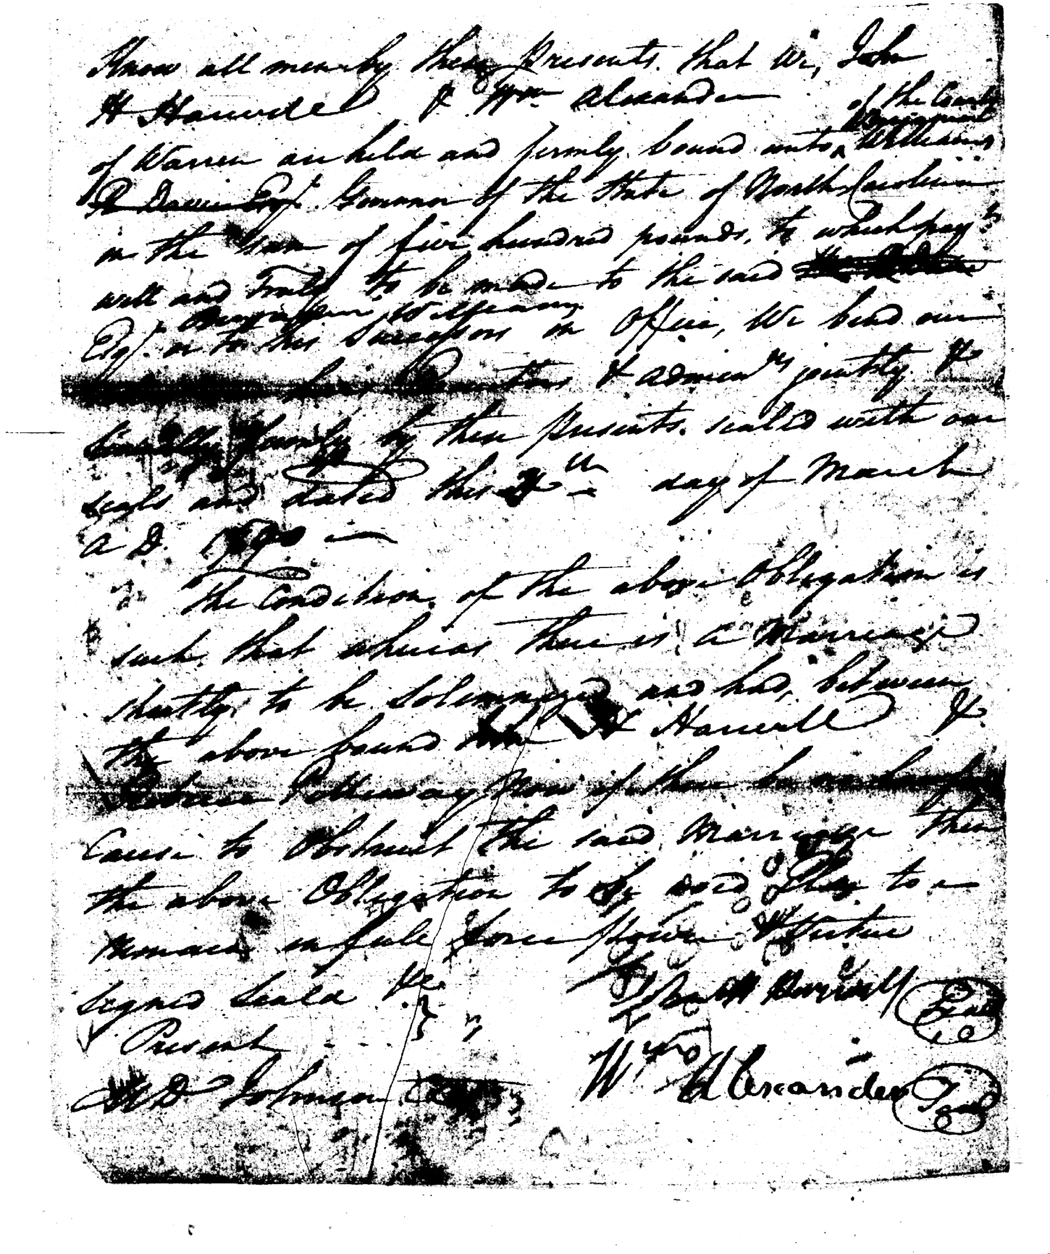 Know all men by these Presents that We, John
H Harwell & Wm Alexander of the County
of Warren are held and firmly bound unto Benjamin Williams
R Davie Esqr. Governor of the State of North Carolina
in the Sum of five hundred pounds, to which paymt
well and Truly to be made to the said
Benjamin Williams
Esqr. or to his Successors in Office, We bind our
& admin'rs jointly &
Severally firmly by these presents. sealed with our
seals and dated this day of March
A D.
The Condition of the above Obligation is
such, that whereas there is a Marriage
shortly to be Solemnized and had, between
the above bound John H Harwell &
Now if there be no lawful
Cause to Obstruct the said Marriage then
the above Obligation to be void Else to
remain in full force power & Virtue
Signed Seald &c
Present Seal
Wm Alexander Seal
M D Johnson